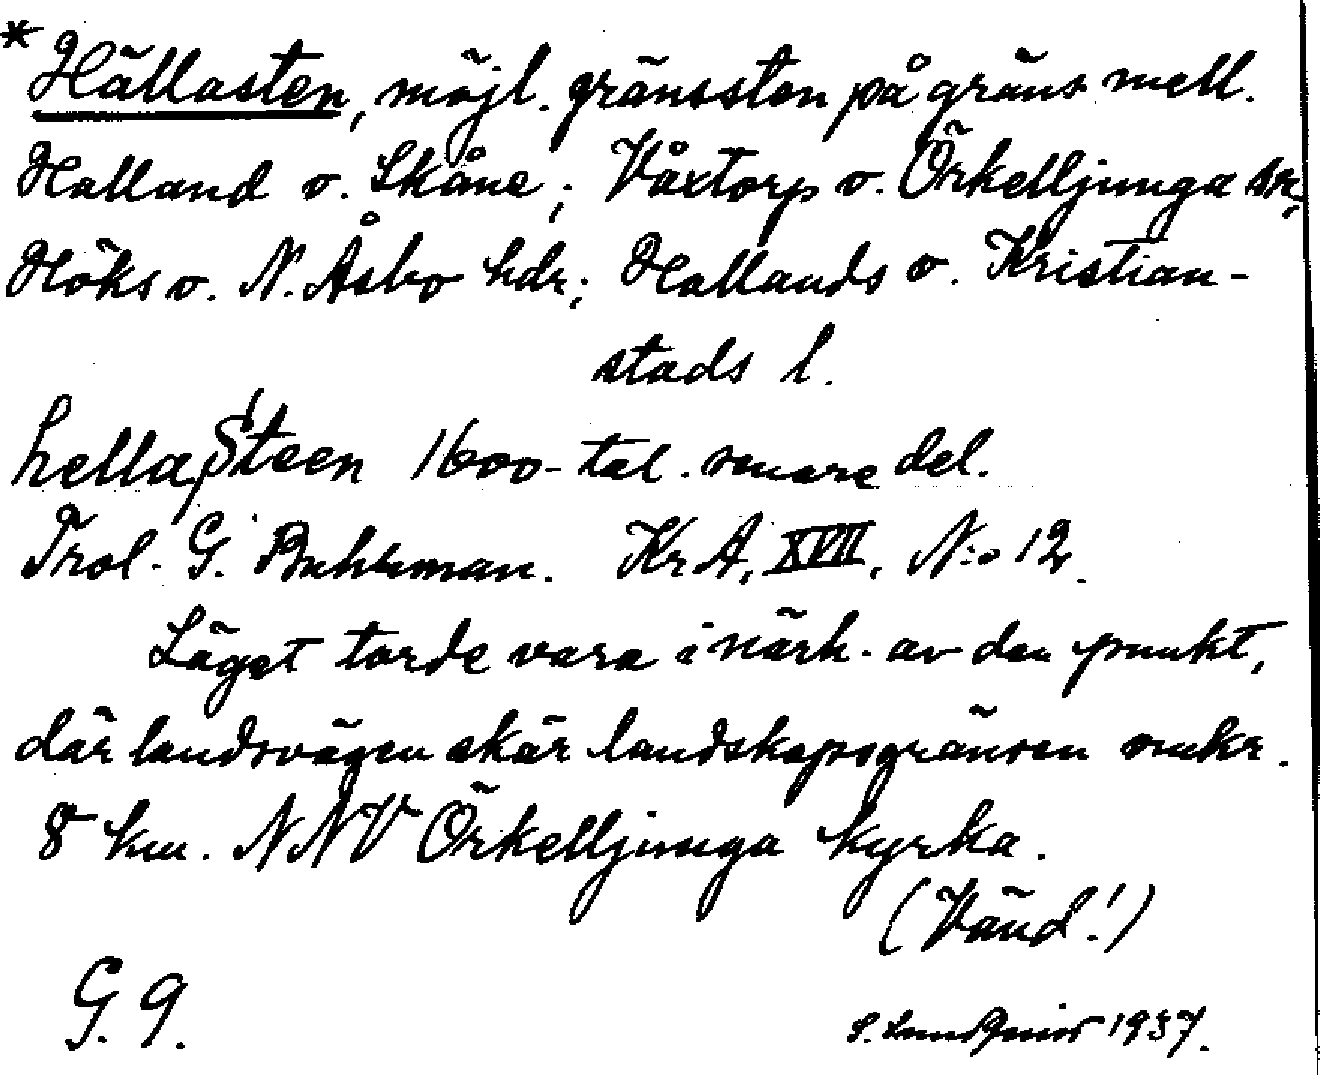 * Hällasten, möjl. gränssten på gräns mell.
Halland o. Skåne; Våxtorp o. Örkelljunga snr,
Höks o. N. Åsbo hdr; Hallands o. Kristian-
stads l.
hella Steen 1600-tal. senare del.
Trol. G. Buhrman. Kr A, XVII, N:o 12.
Läget torde vara i närh. av den punkt,
där landsvägen skär landskapsgränsen omkr.
8 km. NNV Örkelljunga kyrka.
(Vänd!)
G. 9.
S. Lundqvist 1937.